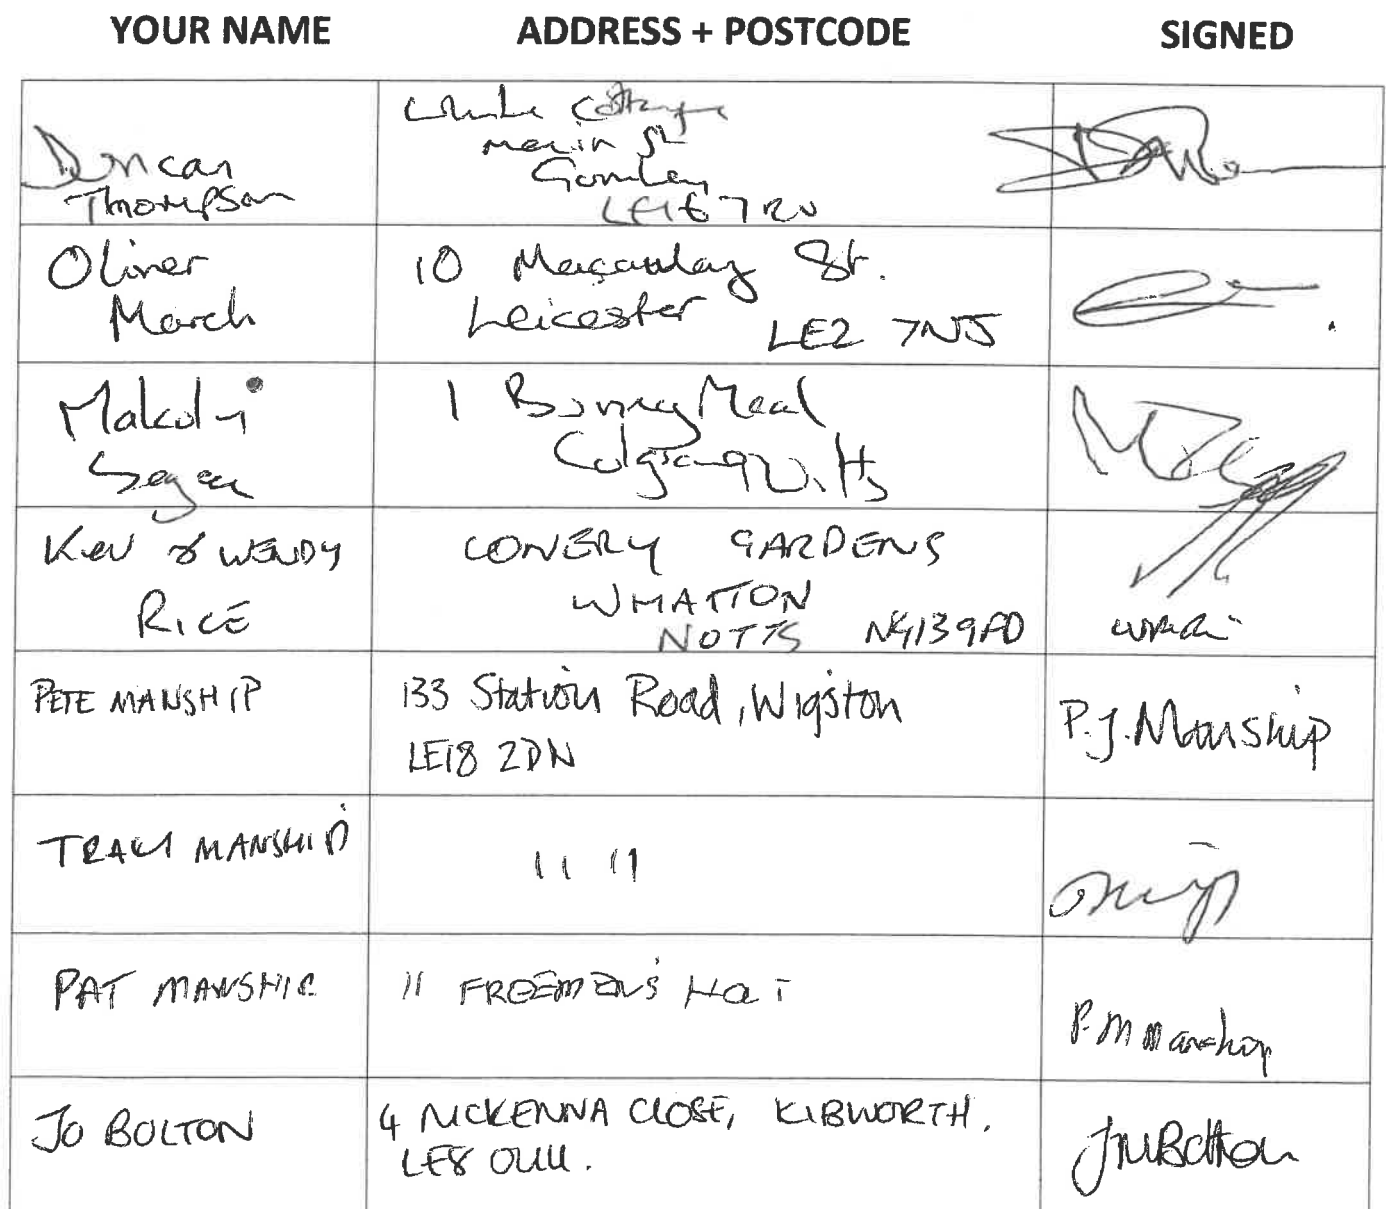 YOUR NAME ADDRESS + POSTCODE SIGNED
Duncan
Thompson
Cottage
main St
Gumley
LE16 7RU
Oliver
March
10 Macaulay St.
Leicester
LE2 7NJ
Malcolm
1
Wilts
Kev & WENDY
RICE
CONERY GARDENS
WHATTON
NOTTS NG139FD
PETE MANSHIP
133 Station Road, Wigston
LE18 2DN
P.J. Manship
TRACY MANSHIP
11 11
PAT MANSHIP
11 FREEMENS HOLT
P M Manship
JO BOLTON
4 MCKENNA CLOSE, KIBWORTH.
LE8 0UU.
JMBolton